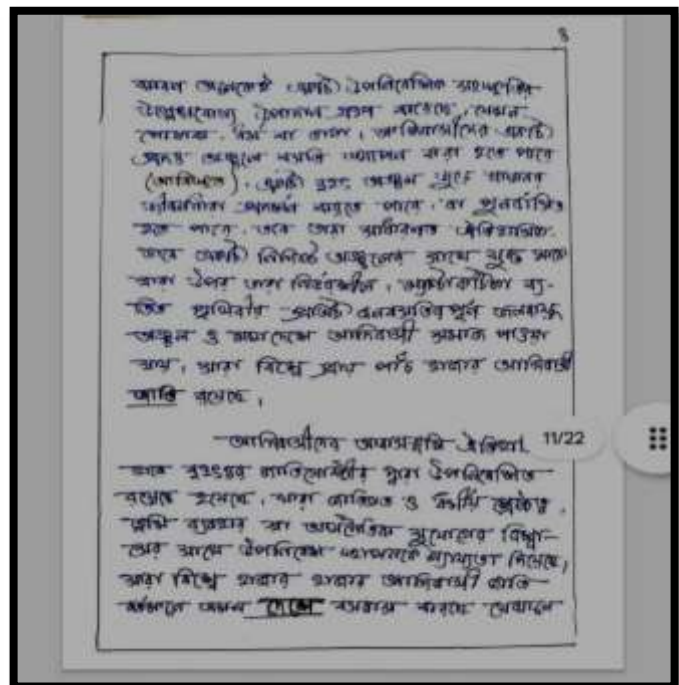 ৪
কারণ অনেকেই একটি ঔপনিবেশিক সংস্কৃতির
উল্লেখযোগ্য উপাদান গ্রহণ করেছে, যেমন
পোষাক, ধর্ম বা ভাষা, আদিবাসীদের একটি
প্রদত্ত অঞ্চলে বসতি স্থাপন করা হতে পারে
(আদিবাসী), একটি বৃহৎ অঞ্চল জুড়ে যাযাবর
জীবনধারা প্রদর্শন করতে পারে, বা পুনর্বাসিত
হতে পারে, তবে তারা সাধারণত ঐতিহাসিক
ভাবে একটি নির্দিষ্ট অঞ্চলের সাথে যুক্ত থাকে
যার উপর তারা নির্ভরশীল, অ্যান্টার্কটিকা ব্য-
তিত পৃথিবীর প্রতিটি জনবসতিপূর্ণ জলবায়ু
অঞ্চল ও মহাদেশে আদিবাসী সমাজ পাওয়া
যায়, সারা বিশ্বে প্রায় পাঁচ হাজার আদিবাসী
জাতি রয়েছে,
আদিবাসীদের
11/22
ভাবে বৃহত্তর জাতিগোষ্ঠীর দ্বারা ঔপনিবেশিত
হয়েছে, যারা জাতিগত ও ধর্মীয় শ্রেষ্ঠত্ব,
ভূমি ব্যবহার বা অর্থনৈতিক সুযোগের বিশ্বা-
সের সাথে উপনিবেশ স্থাপনকে ন্যায্যতা দিয়েছে,
সারা বিশ্বে হাজার হাজার আদিবাসী জাতি
বর্তমানে এমন দেশে বসবাস করছে যেখানে